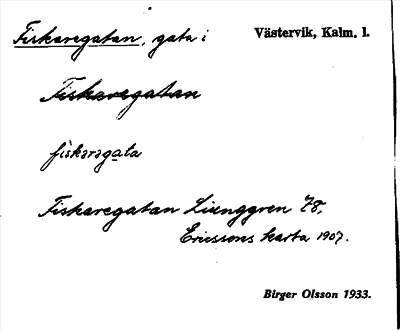 Fiskaregatan, gata i Västervik, Kalm. l.
Fiskaregatan
fiskaragata
Fiskaregatan Liunggren 78.
Ericssons karta 1907.
Birger Olsson 1933.